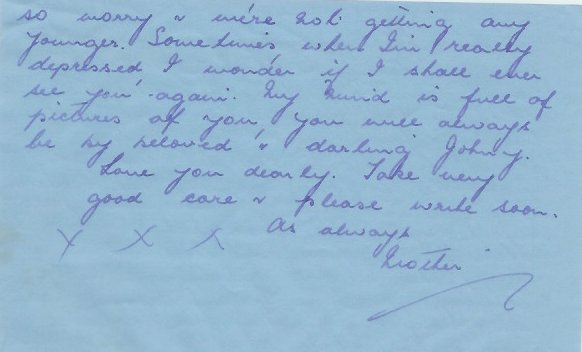 so worry & we're not getting any
younger. Sometimes when I'm really
depressed I wonder if I shall ever
see you again. My mind is full of
pictures of you, you will always
be my beloved & darling Johny.
Love you dearly. Take very
good care & please write soon.
As always
X X X
Mother